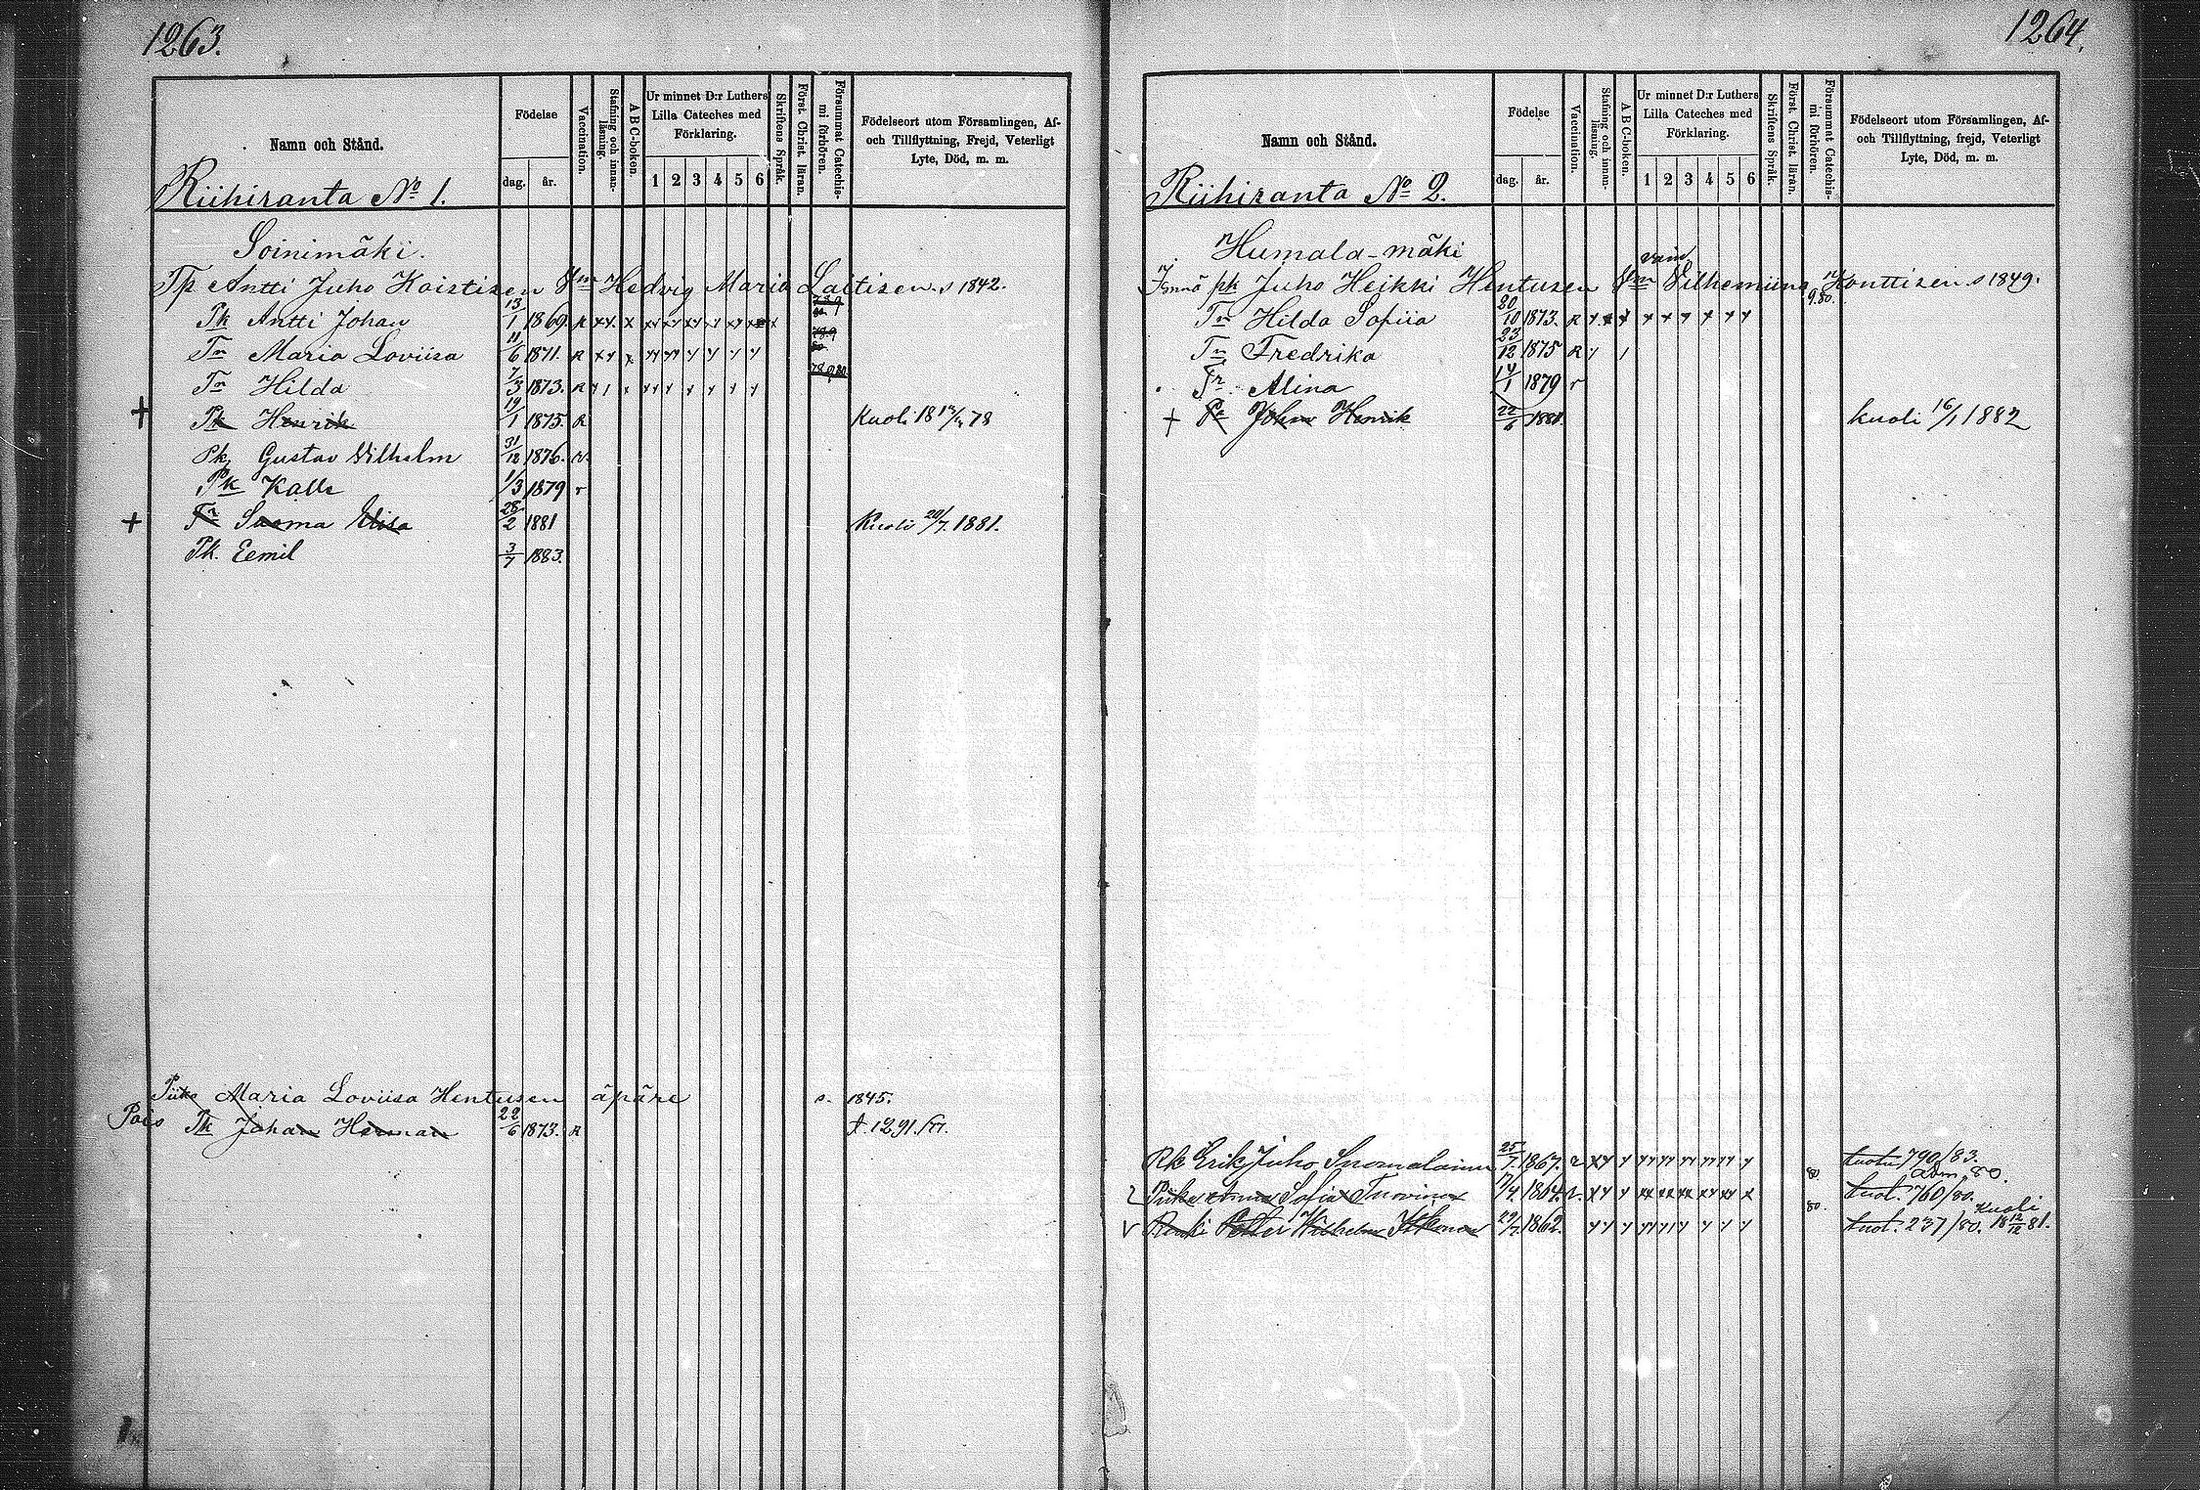 1263.
Namn och Stånd.
Födelse
dag.
år.
Vaccination.
Stafning och innan-läsning.
A B C-boken.
Ur minnet D:r Luthers
Lilla Cateches med
Förklaring.
1 2 3 4 5 6
Skriftens Språk.
Först. Christ. läran.
Försummat Catechis-
mi förhören.
Födelseort utom Församlingen, Af-
och Tillflyttning, Frejd, Veterligt
Lyte, Död, m. m.
Riihiranta No 1.
Soinimäki.
Tp Antti Juho Koistisen Vm Hedvig Maria Laitisen s 1842.
Pk Antti Johan 13/1 1869 R
Tr Maria Loviisa 11/6 1871. R
Tr Hilda 7/3 1873. R
+ Pk Henrik 19/1 1875. R Kuoli 18 /78
Pk Gustav Vilhelm 31/12 1876.
Pk Kalle 1/3 1879 r
+ Tr Sanna Elisa 28/2 1881 Kuoli 20/7 1881.
Pk. Eemil 3/7 1883.
Piika Maria Loviisa Hentusen äpäre s. 1845.
Pois Pk Johan Herman 22/6 1873. R 1291.
1264.
Namn och Stånd.
Födelse
dag.
år.
Vaccination.
Stafning och innan-läsning.
A B C-boken.
Ur minnet D:r Luthers
Lilla Cateches med
Förklaring.
1 2 3 4 5 6
Skriftens Språk.
Först. Christ. läran.
Försummat Catechis-
mi förhören.
Födelseort utom Församlingen, Af-
och Tillflyttning, frejd, Veterligt
Lyte, Död, m. m.
Riihiranta No 2.
Humala-mäki
vaim
pk Juho Heikki Hentusen Vilhemiina Konttisen s 1849.
Tr Hilda Sofiia 20/10 1873. R 9.80.
Tr Fredrika 23/12 1875 R
Tr Alina 14/1 1879 r
+ Johan Henrik 22/6 1881. kuoli 16/1 1882
Rk Erik Juho Suomalainen 25/7 1867. 790/83.
Piika Anna Sofia Tuovinen 1864. 80 tuot. 760/80.
Renki Petter Wilhelm Itkonen 29/7 1862. 80. tuot. 237/80. Kuoli 18 12/12 81.